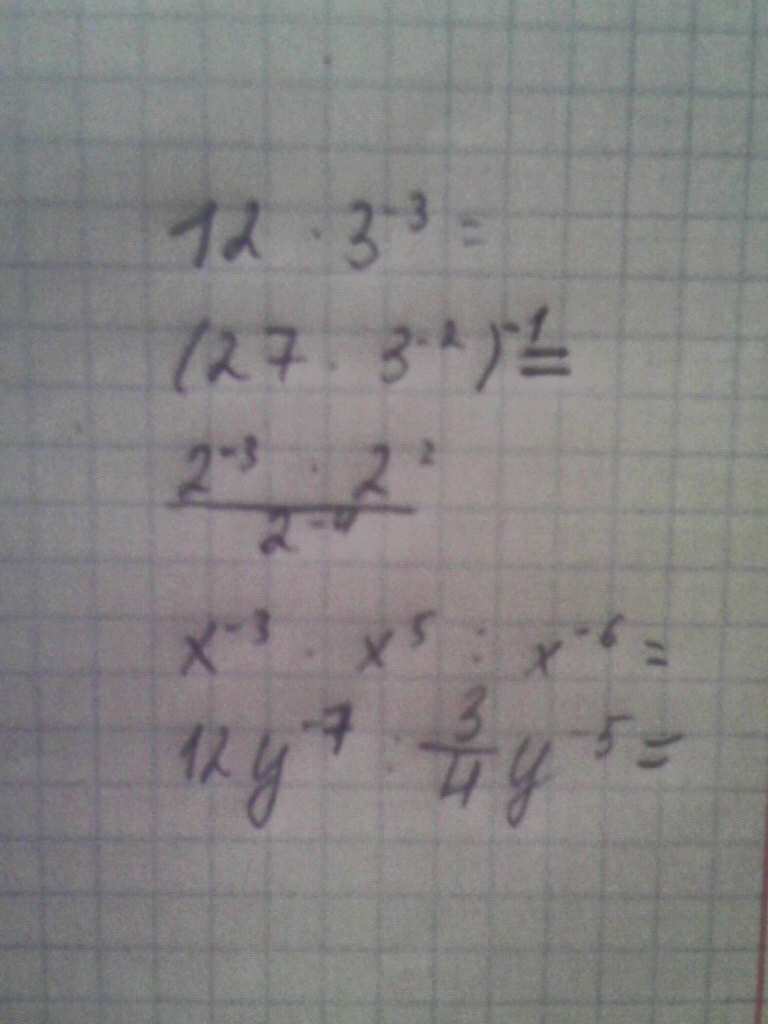 12 · 3⁻³ =
(27 · 3⁻²)⁻¹ =
2⁻³ · 2²
2⁻⁴
x⁻³ · x⁵ : x⁻⁶ =
12y⁻⁷ : 3/4 y⁻⁵ =